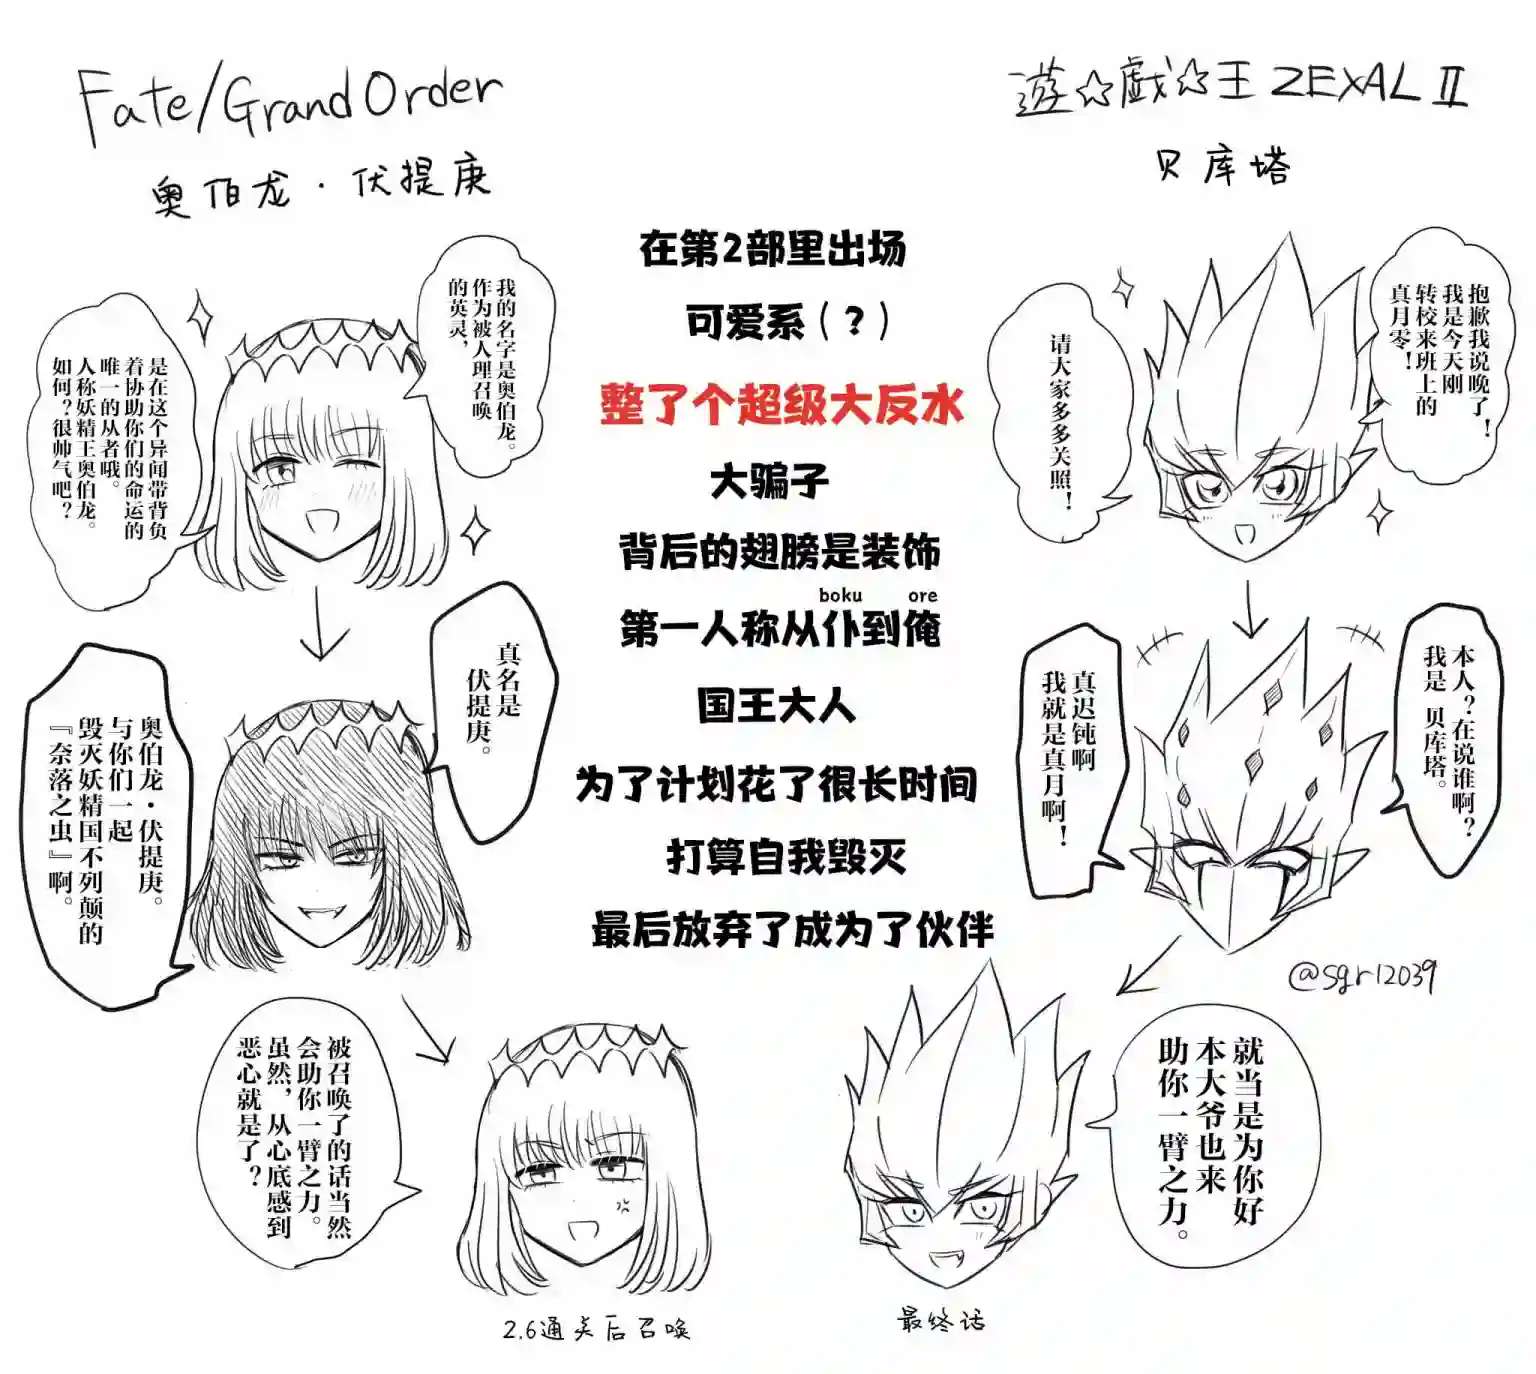 Fate/Grand Order
奥伯龙・伏提庚
遊☆戯☆王 ZEXAL Ⅱ
贝库塔
在第2部里出场
可爱系（？）
整了个超级大反水
大骗子
背后的翅膀是装饰
boku ore
第一人称从仆到俺
国王大人
为了计划花了很长时间
打算自我毁灭
最后放弃了成为了伙伴
我的名字是奥伯龙。
作为被人理召唤
的英灵，
是在这个异闻带背负
着协助你们的命运的
唯一的从者哦。
人称妖精王奥伯龙。
如何？很帅气吧？
真名是
伏提庚。
奥伯龙・伏提庚。
与你们一起
毁灭妖精国不列颠的
『奈落之虫』啊。
被召唤了的话当然
会助你一臂之力。
虽然，从心底感到
恶心就是了？
2.6通关后召唤
抱歉我说晚了！
我是今天刚
转校来班上的
真月零！
请大家多多关照！
本人？在说谁啊？
我是 贝库塔。
真迟钝啊
我就是真月啊！
就当是为你好
本大爷也来
助你一臂之力。
最终话
@sgr12039